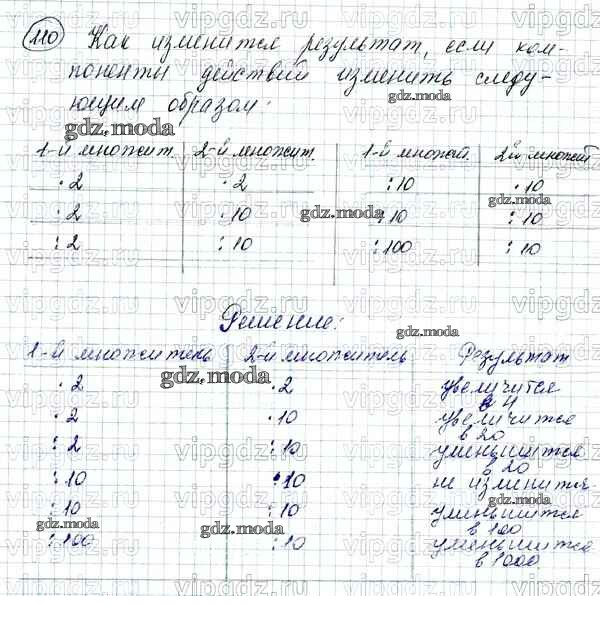 110 Как изменится результат, если ком-
поненты действий изменить следу-
ющим образом:
1-й множит. 2-й множит. 1-й множит. 2-й множит
· 2 · 2 : 10 · 10
: 2 · 10 : 10 : 10
: 2 : 10 : 100 : 10
Решение:
1-й множитель 2-й множитель Результат
· 2 · 2 увеличится
в 4
· 2 · 10 увеличится
в 20
: 2 : 10 уменьшится
в 20
: 10 · 10 не изменится
: 10 : 10 уменьшится
в 100
: 100 : 10 уменьшится
в 1000
gdz.moda
vipgdz.com